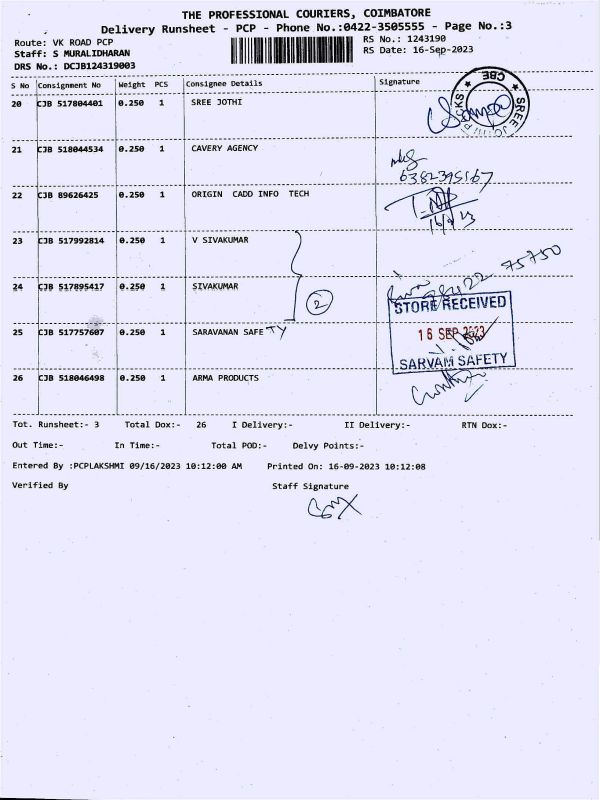 THE PROFESSIONAL COURIERS, COIMBATORE
Delivery Runsheet - PCP - Phone No.:0422-3505555 - Page No.:3
Route: VK ROAD PCP
Staff: S MURALIDHARAN
DRS No.: DCJB124319003
RS No.: 1243190
RS Date: 16-Sep-2023
S No Consignment No Weight PCS Consignee Details Signature
20 CJB 517804401 0.250 1 SREE JOTHI
SREE JOTHI
CBE
21 CJB 518044534 0.250 1 CAVERY AGENCY
6382395167
22 CJB 89626425 0.250 1 ORIGIN CADD INFO TECH
16/9/23
23 CJB 517992814 0.250 1 V SIVAKUMAR
75750
24 CJB 517895417 0.250 1 SIVAKUMAR
2
STORE RECEIVED
16 SEP 2023
SARVAM SAFETY
25 CJB 517757607 0.250 1 SARAVANAN SAFE TY
26 CJB 518046498 0.250 1 ARMA PRODUCTS
Tot. Runsheet:- 3 Total Dox:- 26 I Delivery:- II Delivery:- RTN Dox:-
Out Time:- In Time:- Total POD:- Delvy Points:-
Entered By :PCPLAKSHMI 09/16/2023 10:12:00 AM Printed On: 16-09-2023 10:12:08
Verified By Staff Signature